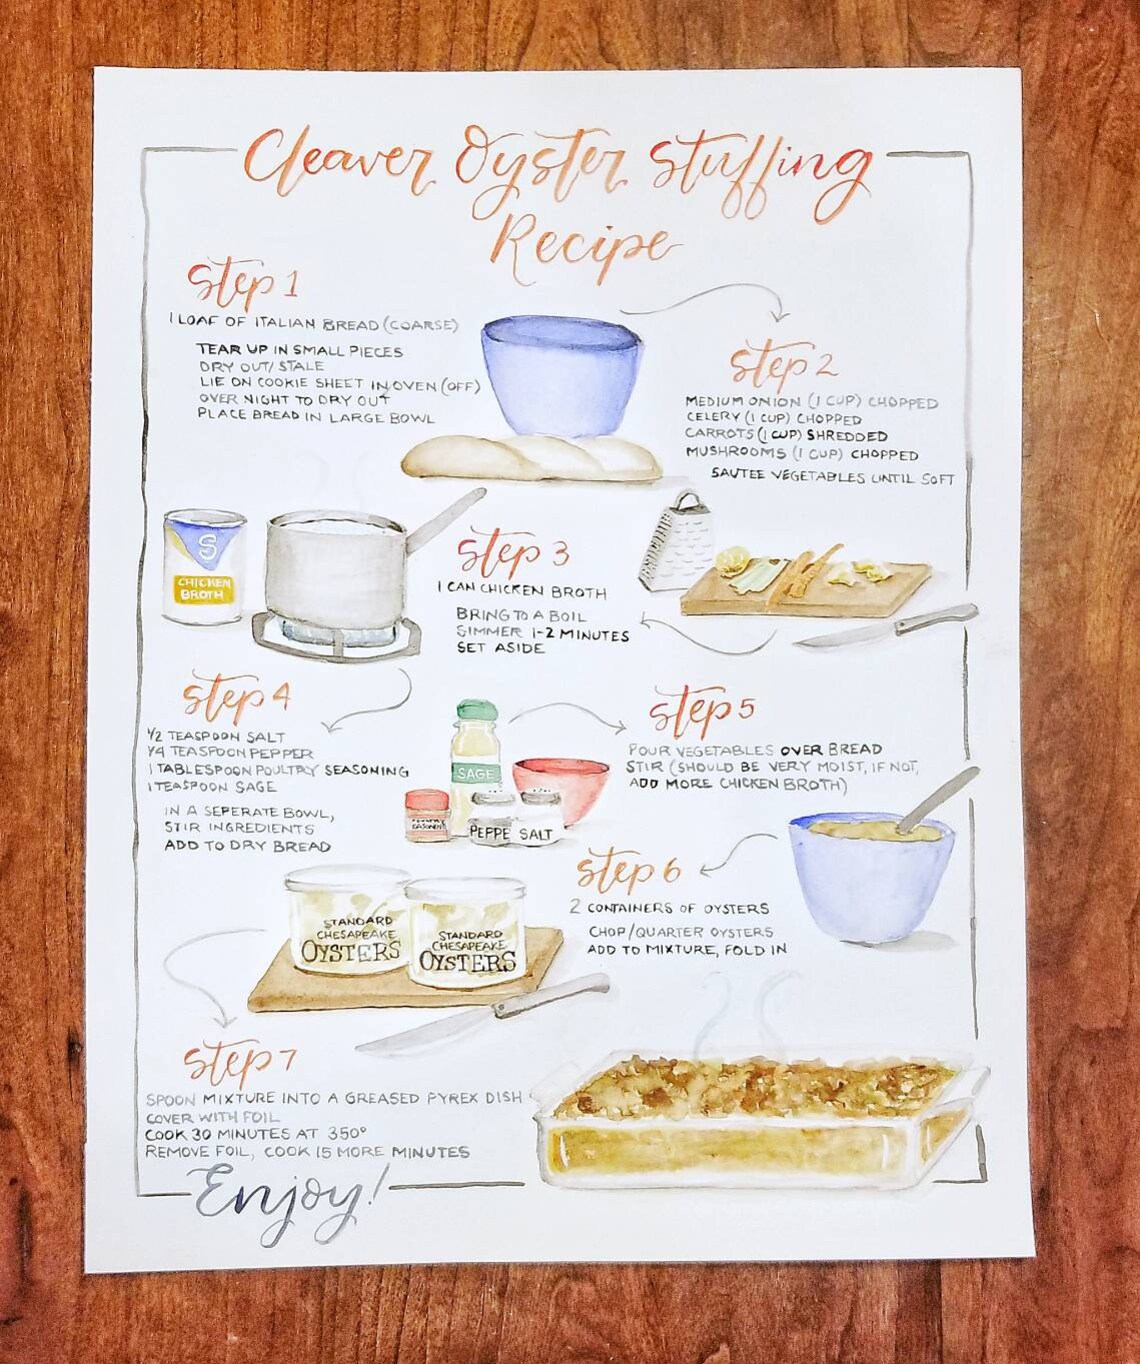 Cleaver Oyster Stuffing
Recipe
Step 1
1 LOAF OF ITALIAN BREAD (COARSE)
TEAR UP IN SMALL PIECES
DRY OUT/STALE
LIE ON COOKIE SHEET IN OVEN (OFF)
OVER NIGHT TO DRY OUT
PLACE BREAD IN LARGE BOWL
Step 2
MEDIUM ONION (1 CUP) CHOPPED
CELERY (1 CUP) CHOPPED
CARROTS (1 CUP) SHREDDED
MUSHROOMS (1 CUP) CHOPPED
SAUTEE VEGETABLES UNTIL SOFT
S
CHICKEN
BROTH
Step 3
1 CAN CHICKEN BROTH
BRING TO A BOIL
SIMMER 1-2 MINUTES
SET ASIDE
Step 4
1/2 TEASPOON SALT
1/4 TEASPOON PEPPER
1 TABLESPOON POULTRY SEASONING
1 TEASPOON SAGE
IN A SEPERATE BOWL,
STIR INGREDIENTS
ADD TO DRY BREAD
SAGE
PEPPE
SALT
Step 5
POUR VEGETABLES OVER BREAD
STIR (SHOULD BE VERY MOIST, IF NOT,
ADD MORE CHICKEN BROTH)
Step 6
2 CONTAINERS OF OYSTERS
CHOP/QUARTER OYSTERS
ADD TO MIXTURE, FOLD IN
STANDARD
CHESAPEAKE
OYSTERS
STANDARD
CHESAPEAKE
OYSTERS
Step 7
SPOON MIXTURE INTO A GREASED PYREX DISH
COVER WITH FOIL
COOK 30 MINUTES AT 350°
REMOVE FOIL, COOK 15 MORE MINUTES
Enjoy!